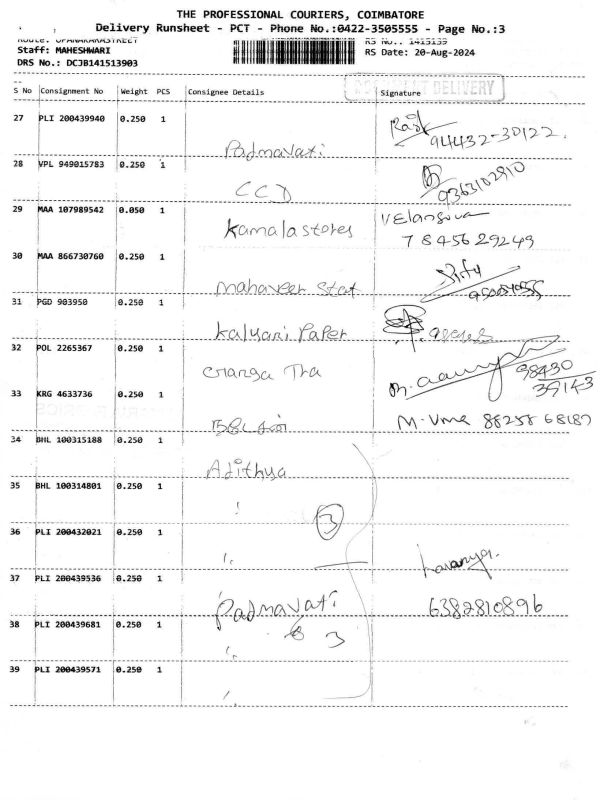 THE PROFESSIONAL COURIERS, COIMBATORE
Delivery Runsheet - PCT - Phone No.:0422-3505555 - Page No.:3
Staff: MAHESHWARI
RS No.: 1415139
RS Date: 20-Aug-2024
DRS No.: DCJB141513903
S No Consignment No Weight PCS Consignee Details Signature
DELIVERY
27 PLI 200439940 0.250 1 Padmavati 94432-30122.
28 VPL 949015783 0.250 1 CCD 9363102910
29 MAA 107989542 0.050 1 Kamala stores 7845629249
30 MAA 866730760 0.250 1 Mahaveer Stat
31 PGD 903950 0.250 1 Kalyani Paper
32 POL 2265367 0.250 1 98430
39143
33 KRG 4633736 0.250 1 M. Uma 88258 68187
34 BHL 100315188 0.250 1 Adithya
35 BHL 100314801 0.250 1 "
3
36 PLI 200432021 0.250 1 "
Lavanya.
37 PLI 200439536 0.250 1 Padmavati 6382810896
38 PLI 200439681 0.250 1 " 3
39 PLI 200439571 0.250 1 "